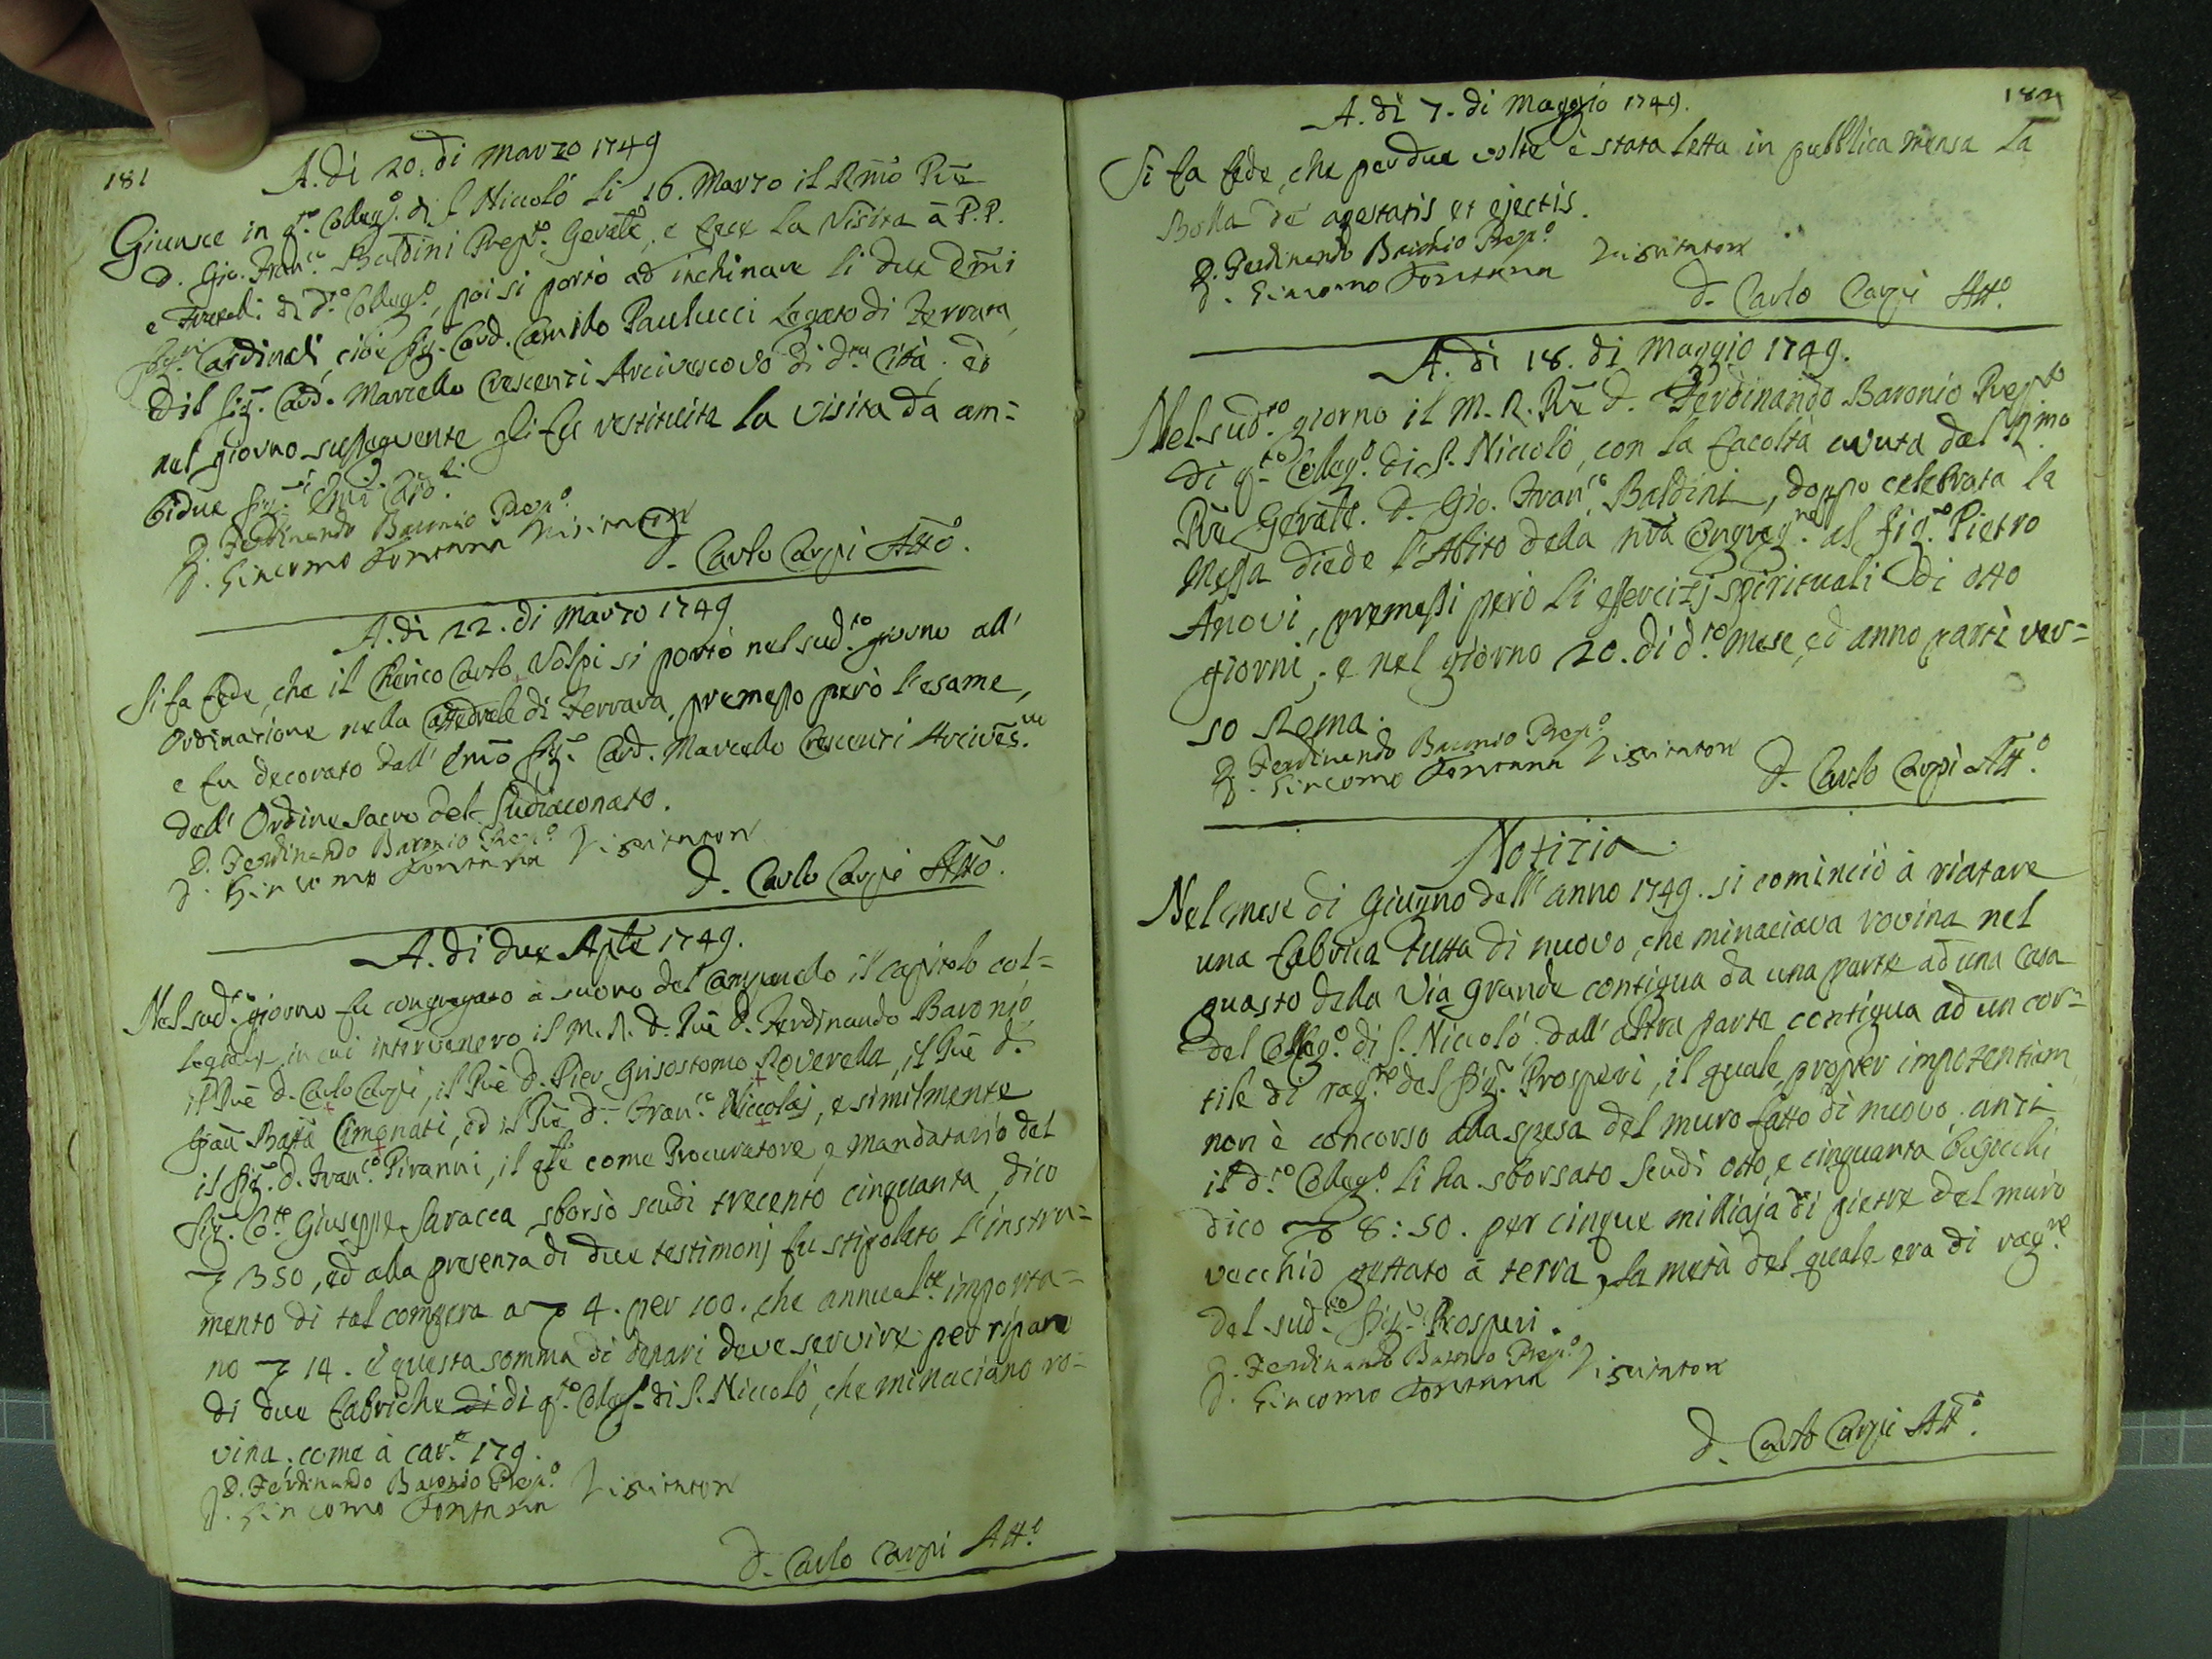 181
A. dì 20. di Marzo 1749
Giunse in q.to Colleg.o di S. Niccolò li 16. Marzo il R.mo P̃re
D. Gio. Fran.co Baldini Prep.to Gen̄ale, e fece la Visita à P.P.
e Fratelli di d.to Colleg.o, poi si portò ad inchinare li due Em̄i
Sig.ri Cardinali, cioè Sig.r Card. Camillo Paulucci Legato di Ferrara,
dil Sig.r Card. Marcello Crescenzi Arcivescovo di d.ta Città; ed
nel giorno susseguente gli fu restituita la visita da am=
bidue Sig.ri Em̄i Card.li
D. Ferdinando Baronio Prep.o
D. Giacomo Fontana Visitator
D. Carlo Carpi Att.o
A. dì 22. di Marzo 1749
Si fa fede, che il Cherico Carlo Volpi si portò nel sud.to giorno all'
Ordinazione nella Cattedrale di Ferrara, premesso però l'esame,
e fu decorato dall' Em̄o Sig.r Card. Marcello Crescenzi Arcives.vo
dell' Ordine Sacro del Sudiaconato.
D. Ferdinando Baronio Prep.o
D. Giacomo Fontana Visitator
D. Carlo Carpi Att.o
A. dì due Ap̄le 1749.
Nel sud.to giorno fu congregato à suono del Campanello il capitolo col=
legiale, in cui intervenero il M. R. D. P̃re D. Ferdinando Baronio
il P̃re D. Carlo Carpi, il P̃re D. Pier Grisostomo Roverella, il P̃re D.
Giañ Batt̄a Cimonati, ed il P̃re D. Fran.co Niccolaj, e similmente
il Sig.r D. Fran.co Piranni, il q̄le come Procuratore, e Mandatario del
Sig.r Co.te Giuseppe Saracca, sborsò scudi trecento cinquanta, dico
350, ed alla presenza di due testimonj fu stipolato l'instru=
mento di tal compera a 4. per 100. che annual.te importa=
no 14. e questa somma di denari deve servire per riparo
di due fabriche di di q.to Colleg.o di S. Niccolò, che minaciano ro=
vina; come à car.te 179.
D. Ferdinando Baronio Prep.o
D. Giacomo Fontana Visitator
D. Carlo Carpi Att.o
182
A. dì 7. di Maggio 1749.
Si fa fede, che per due volte è stata letta in pubblica mensa la
Bolla de apostatis et ejectis.
D. Ferdinando Baronio Prep.o
D. Giacomo Fontana Visitator
D. Carlo Carpi Att.o
A. dì 18. di Maggio 1749.
Nel sud.to giorno il M. R. P̃re D. Ferdinando Baronio Prep.to
di q.to Colleg.o di S. Niccolò, con la facoltà avuta dal R.mo
P̃re Gen̄ale D. Gio. Fran.co Baldini, doppo celebrata la
Messa diede l'Abito della nr̄a Congreg.ne al Sig.r Pietro
Anovi, premessi però li essercizj spirituali di otto
giorni; e nel giorno 20. di d.to mese, ed anno partì ver=
so Roma.
D. Ferdinando Baronio Prep.o
D. Giacomo Fontana Visitator
D. Carlo Carpi Att.o
Notizia.
Nel mese di Giugno dell' anno 1749. si cominciò à riatare
una fabrica tutta di nuovo, che minaciava rovina nel
guasto della Via grande contigua da una parte ad una Casa
del Colleg.o di S. Niccolò, dall' altra parte contigua ad un cor=
tile di rag.ne del Sig.r Prosperi, il quale, propter impotentiam
non è concorso alla spesa del muro fatto di nuovo, anzi
il d.to Colleg.o li ha sborsato scudi otto, e cinquanta bajocchi
dico 8:50. per cinque milliaja di pietre del muro
vecchio gettato à terra, la metà del quale era di rag.ne
del sud.to Sig.r Prosperi.
D. Ferdinando Baronio Prep.o
D. Giacomo Fontana Visitator
D. Carlo Carpi Att.o